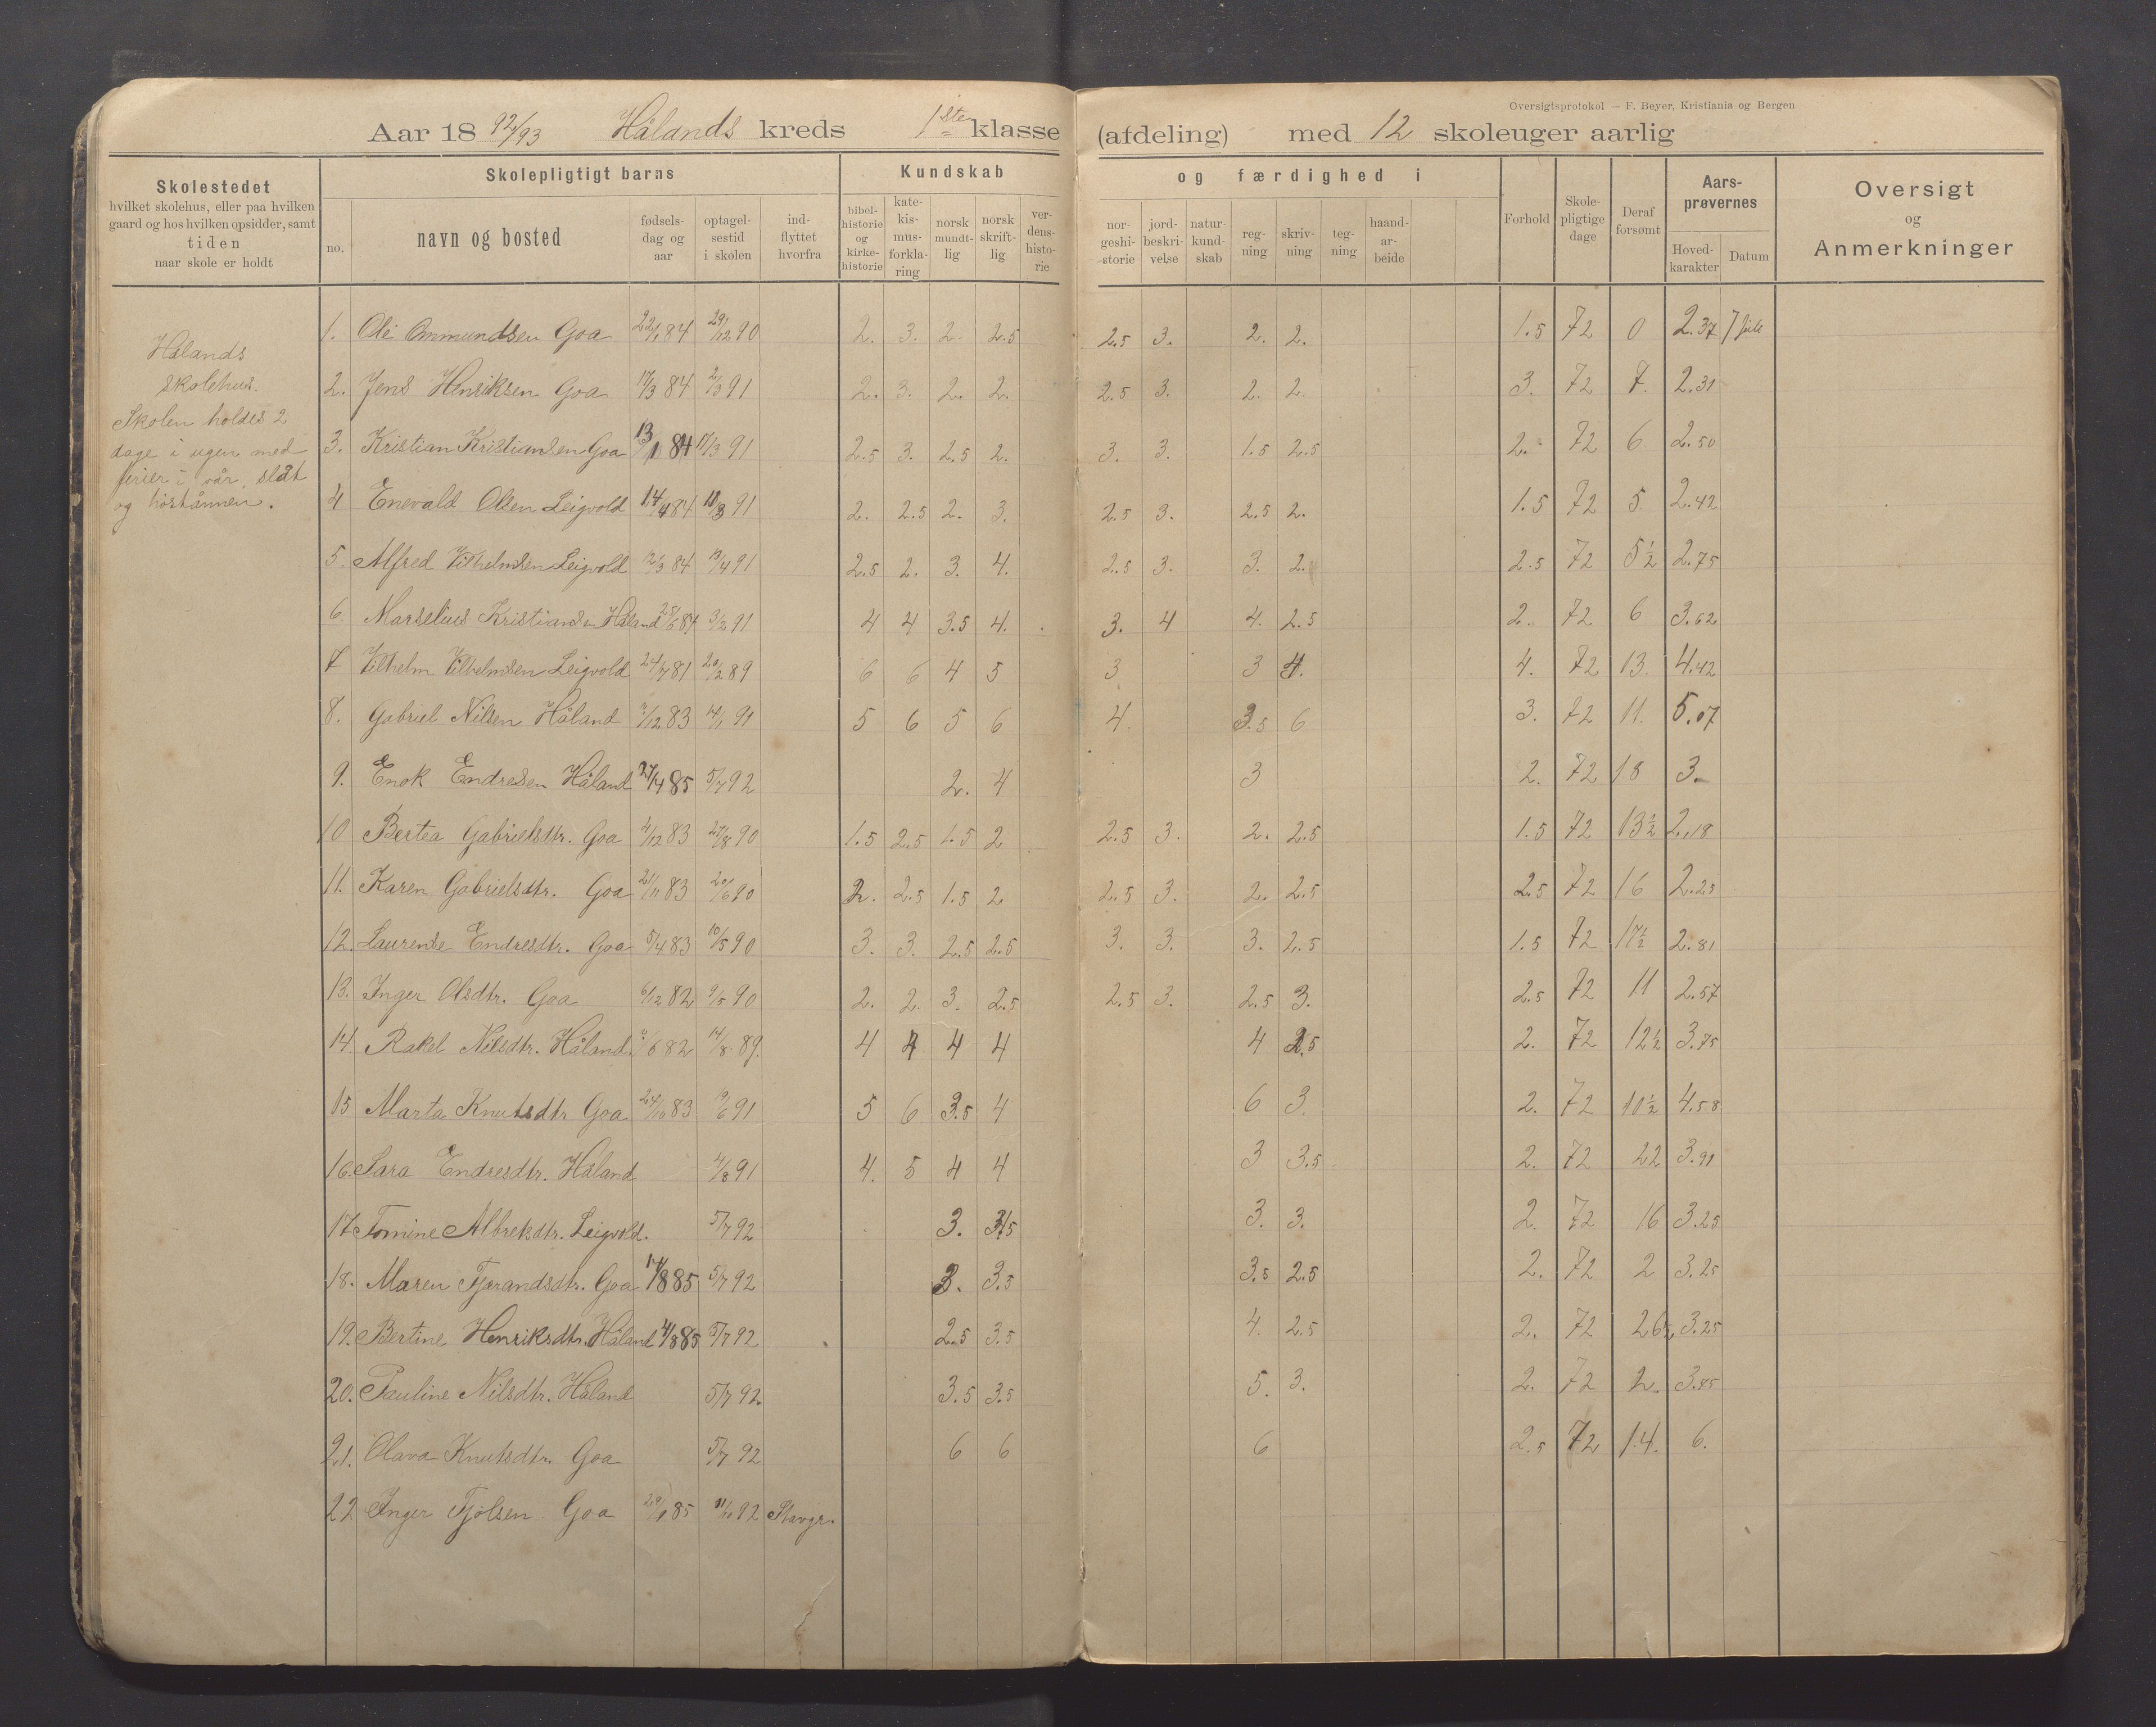 Oversigtsprotokol — F. Beyer, Kristiania og Bergen
Aar 18 92/93 Hålands kreds 1ste klasse (afdeling) med 12 skoleuger aarlig
Skolestedet
hvilket skolehus, eller paa hvilken
gaard og hos hvilken opsidder, samt
tiden
naar skole er holdt
Skolepligtigt barns
no.
navn og bosted
fødsels-
dag og
aar
optagel-
sestid
i skolen
ind-
flyttet
hvorfra
Kundskab og færdighed i
bibel-
historie
og
kirke-
historie
kate-
kis-
mus-
forkla-
ring
norsk
mundt-
lig
norsk
skrift-
lig
ver-
dens-
histo-
rie
nor-
geshi-
storie
jord-
beskri-
velse
natur-
kund-
skab
reg-
ning
skriv-
ning
teg-
ning
haand-
ar-
beide
Forhold
Skole-
pligtige
dage
Deraf
forsømt
Aars-
prøvernes
Hoved-
karakter
Datum
Oversigt
og
Anmerkninger
Hålands
skolehus.
Skolen holdes 2
dage i ugen med
ferier i vår, slåt
og høstånnen.
1. Ole Ommundsen Goa 22/1 84 29/12 90 2. 3. 2. 2.5 2.5 3. 2. 2. 1.5 72 0 2.37
2. Jens Henriksen Goa 17/3 84 2/3 91 2. 3. 2. 2. 2.5 3. 2. 2. 3. 72 7. 2.31
3. Kristian Kristiansen Goa 84 17/3 91 2.5 3. 2.5 2. 3. 3. 1.5 2.5 2. 72 6 2.50
4 Enevald Olsen Leigvold 14/4 84 91 2. 2.5 2. 3. 2.5 3. 2.5 2. 1.5 72 5 2.42
5. Alfred Vilhelmsen Leigvold 12/3 84 13/4 91 2.5 2. 3. 4. 2.5 3. 3. 2. 2.5 72 5½ 2.75
6 Marselius Kristiansen Håland 25/6 84 3/2 91 4 4 3.5 4. 3. 4 4. 2.5 2. 72 6 3.62
7 Vilhelm Vilhelmsen Leigvold 24/7 81 20/2 89 6 6 4 5 3 3 4. 4. 72 13 4.42
8. Gabriel Nilsen Håland /12 83 14/1 91 5 6 5 6 4. 3.5 6 3. 72 11. 5.07
9. Enok Endresen Håland 27/4 85 5/7 92 2. 4 3 2. 72 18 3.
10 Bertea Gabrielsdtr. Goa 4/12 83 27/8 90 1.5 2.5 1.5 2 2.5 3. 2. 2.5 1.5 72 13½ 2.18
11. Karen Gabrielsdtr. Goa 21/11 83 20/6 90 2. 2.5 1.5 2 2.5 3. 2. 2.5 2.5 72 16 2.25
12. Laurense Endresdtr. Goa 5/4 83 10/5 90 3. 3. 2.5 2.5 3. 3. 3. 2.5 1.5 72 17½ 2.81
13. Inger Olsdtr. Goa 6/12 82 9/5 90 2. 2. 3. 2.5 2.5 3. 2.5 3. 2.5 72 11 2.57
14. Rakel Nilsdtr. Håland /6 82 14/8 89. 4 4 4 4 4 2.5 2. 72 12½ 3.75
15 Marta Knutsdtr Goa 24/10 83 19/6 91 5 6 3.5 4 6 3. 2. 72 10½ 4.58
16. Sara Endresdtr. Håland 4/8 91 4. 5 4 4 3 3.5 2. 72 22 3.91
17. Tomine Albretsdtr. Leigvold. 5/7 92 3. 3.5 3. 3. 2. 72 16 3.25
18. Maren Tjerandsdtr. Goa 14/8 85 5/7 92 3. 3.5 3.5 2.5 2. 72 2 3.25
19. Bertine Henriksdtr. Håland 4/8 85 5/7 92 2.5 3.5 4. 2.5 2. 72 26 3.25
20. Pauline Nilsdtr. Håland 5/7 92. 3.5 3.5 5. 3. 2. 72 2. 3.75
21. Olava Knutsdtr. Goa 5/7 92 6 6 6 2.5 72 14. 6.
22 Inger Tjølsen Goa 85 11/11 92 Stavgr.